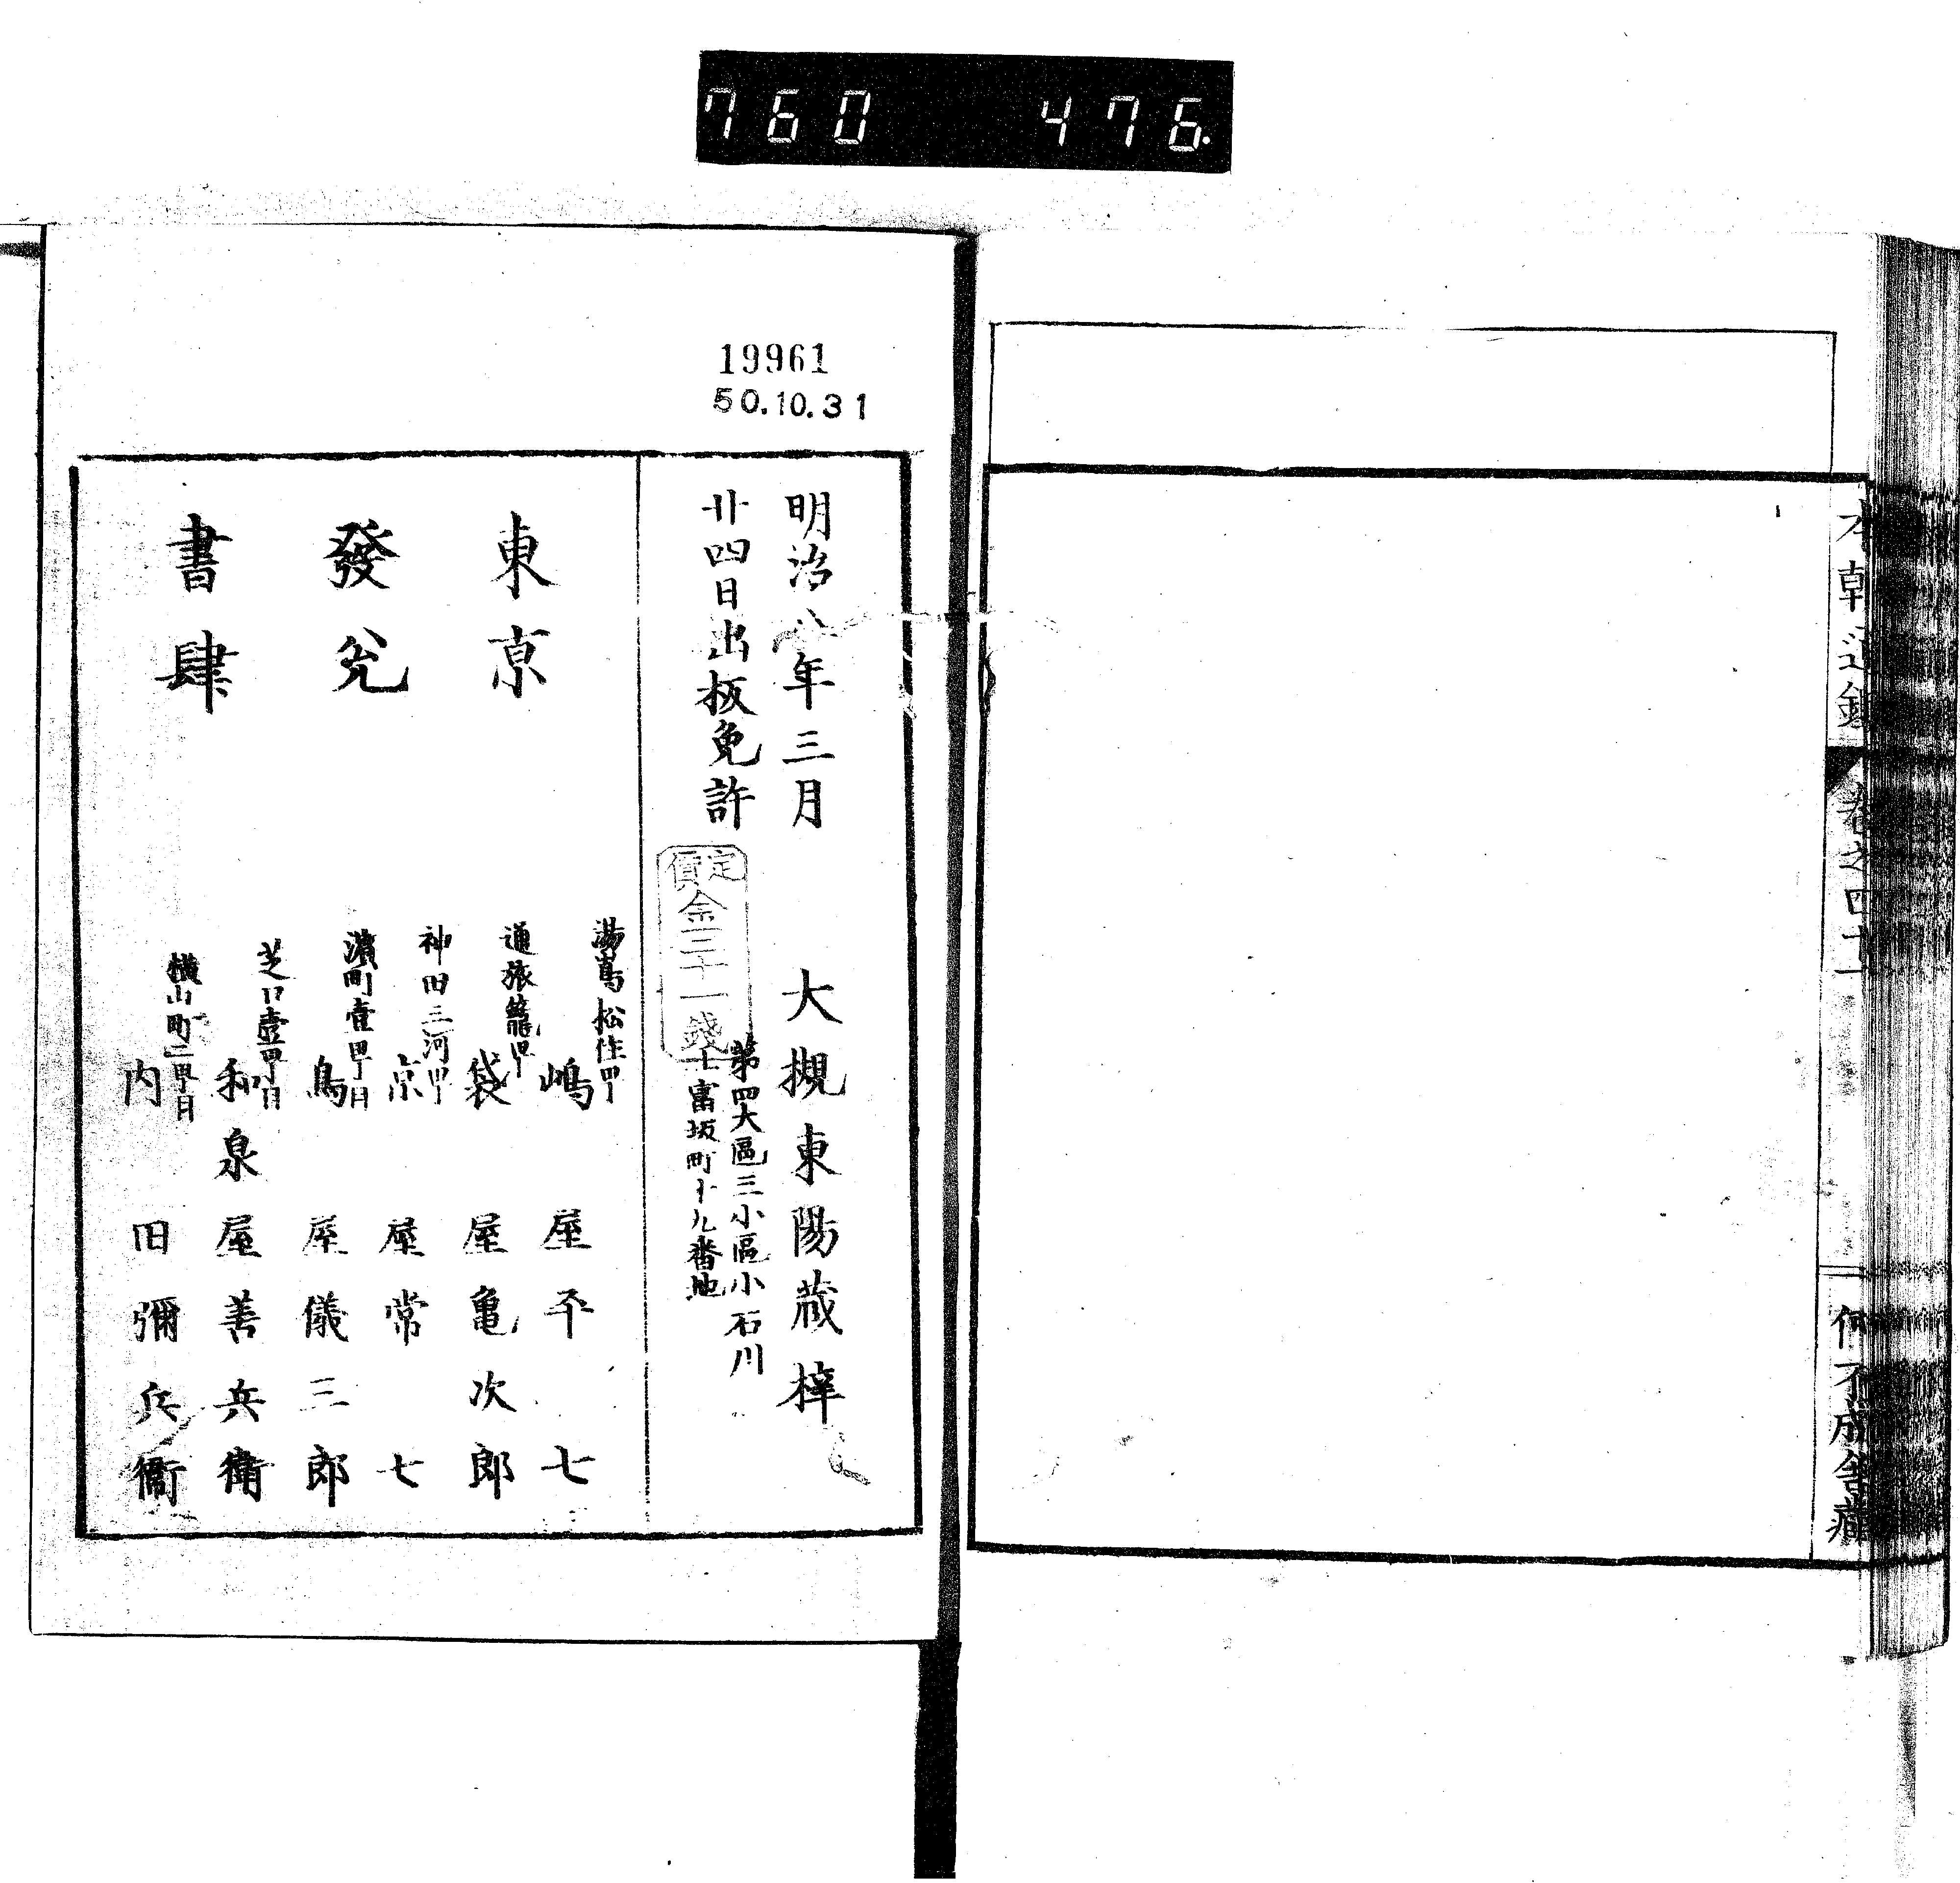 760 476.
本朝通鑑
卷之四十
何不成舎蔵
19961
50.10.31
明治八年三月
廿四日出板免許
大槻東陽蔵梓
第四大區三小區小石川
上富坂町十九番地
定價
金三十一錢
東亰
發兌
書肆
湯嶌松住町
嶋屋平七
通旅籠町
袋屋亀次郎
神田三河町
亰屋常七
濱町壹町目
鳥屋儀三郎
芝口壹町目
和泉屋善兵衛
横山町二町目
内田彌兵衛